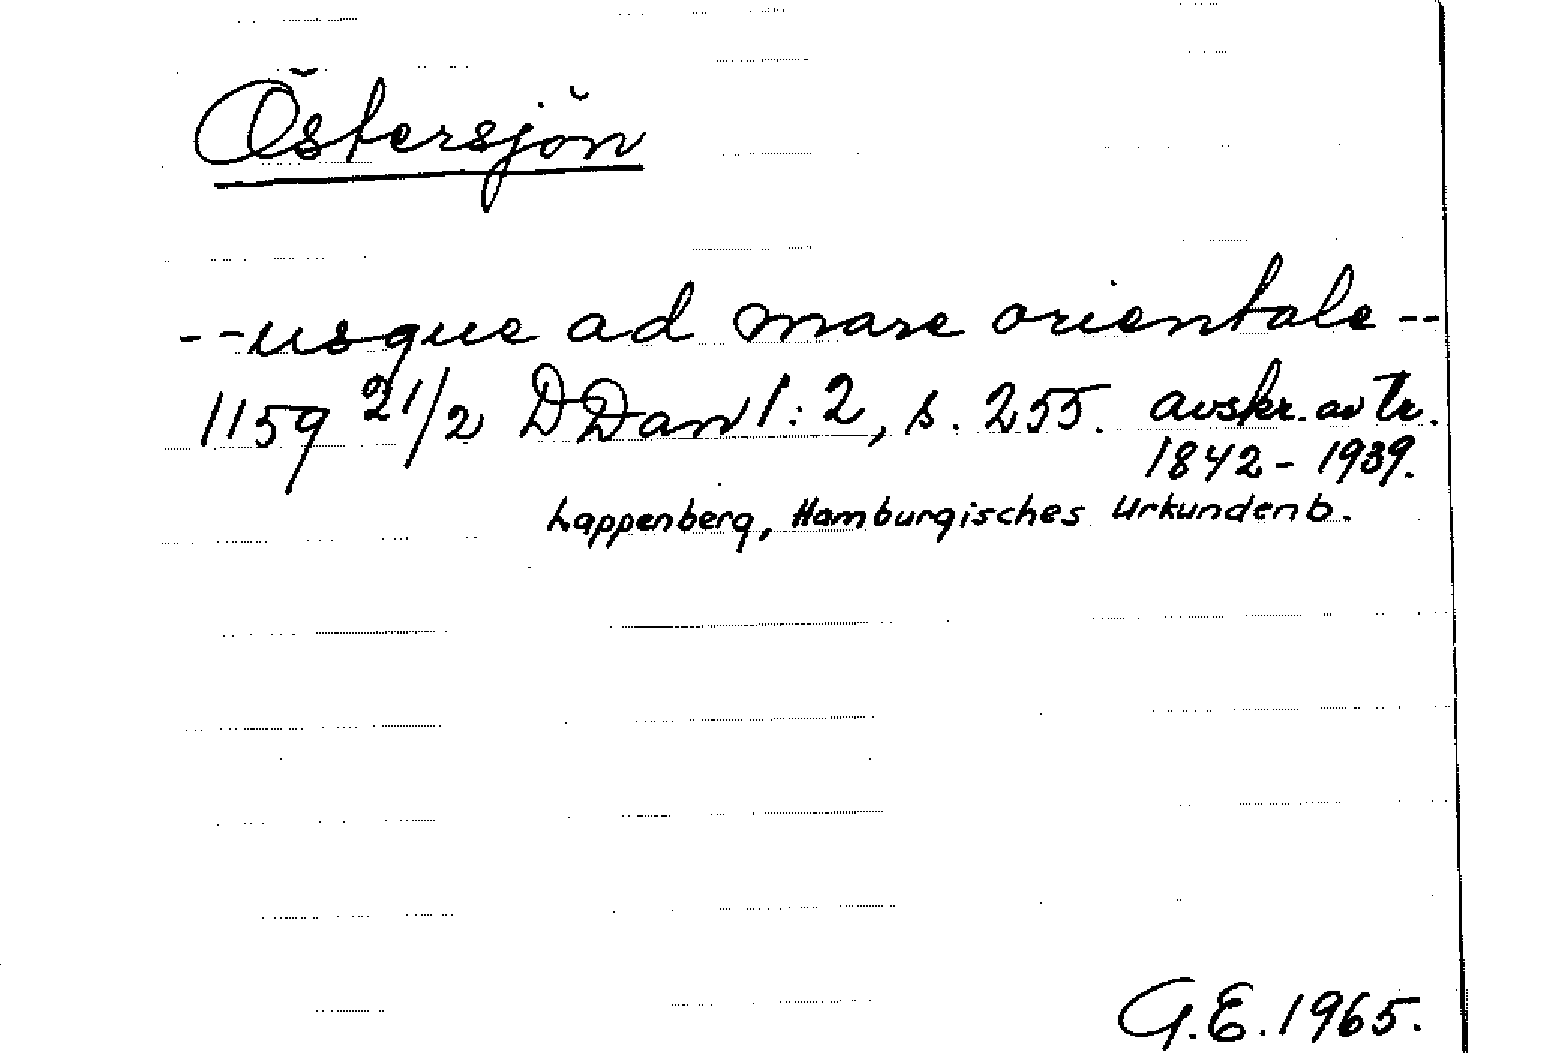 Östersjön
--usque ad mare orientale--
1159 21/2 DDan I:2, s. 255. avskr. av tr.
1842-1939.
Lappenberg, Hamburgisches Urkundenb.
G.E. 1965.